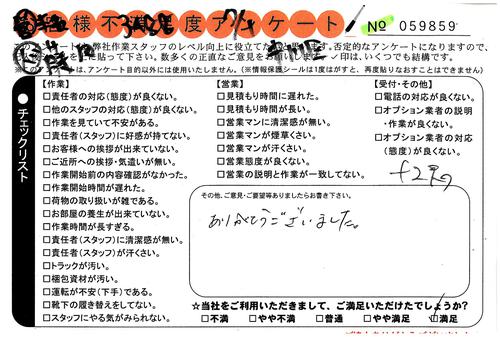 様不満足度アンケート!
№ 059859
このアンケートは、弊社作業スタッフのレベル向上に役立てた
否定的なアンケートになりますので、
数多くの正直なご意見をお
印は、いくつでも結構です。
アンケート目的以外には使用いたしません。(※情報保護シールは1度はがすと、再度貼りなおすことはできません)
チェックリスト
【作業】
□責任者の対応(態度)が良くない。
□他のスタッフの対応(態度)が良くない。
□作業を見ていて不安がある。
□責任者(スタッフ)に好感が持てない。
□お客様への挨拶が出来ていない。
□ご近所への挨拶・気遣いが無い。
□作業開始前の内容確認がなかった。
□作業開始時間が遅れた。
□荷物の取り扱いが雑である。
□お部屋の養生が出来ていない。
□作業時間が長すぎる。
□責任者(スタッフ)に清潔感が無い。
□責任者(スタッフ)が汗くさい。
□トラックが汚い。
□梱包資材が汚い。
□運転が不安(下手)である。
□靴下の履き替えをしてない。
□スタッフにやる気がみられない。
【営業】
□見積もり時間に遅れた。
□見積もり時間が長い。
□営業マンに清潔感が無い。
□営業マンが煙草くさい。
□営業マンが汗くさい。
□営業態度が良くない。
□営業の説明と作業が一致してない。
【受付・その他】
□電話の対応が良くない。
□オプション業者の説明
・作業が良くない。
□オプション業者の対応
(態度)が良くない。
その他、ご意見・ご要望等ありましたらお書き下さい。
ありがとうございました。
☆当社をご利用いただきまして、ご満足いただけたでしょうか?
□不満 □やや不満 □普通 □やや満足 □満足